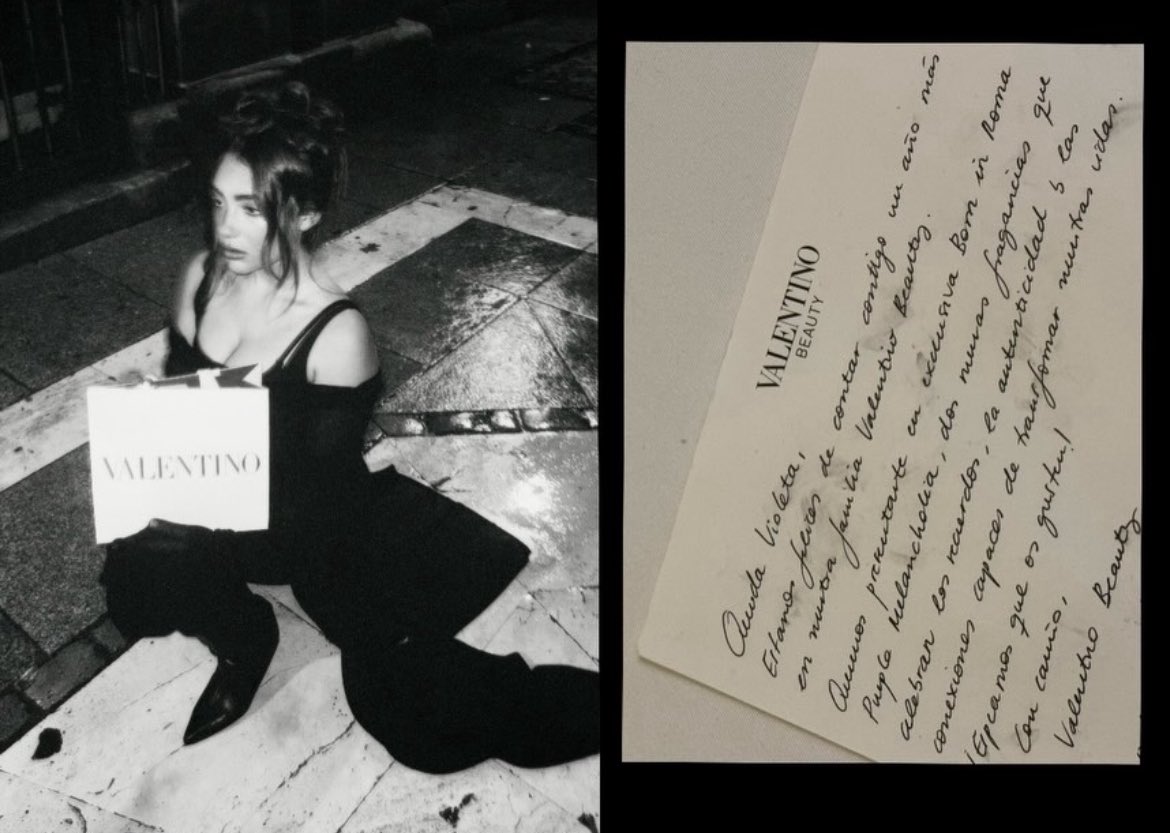 VALENTINO
VALENTINO
BEAUTY
Querida Violeta,
Estamos felices de contar contigo un año más
en nuestra familia Valentino Beauty.
Queremos presentarte en exclusiva Born in Roma
Purple Melancholia, dos nuevas fragancias que
celebran los recuerdos, la autenticidad y las
conexiones capaces de transformar nuestras vidas.
¡Esperamos que os gusten!
Con cariño,
Valentino Beauty